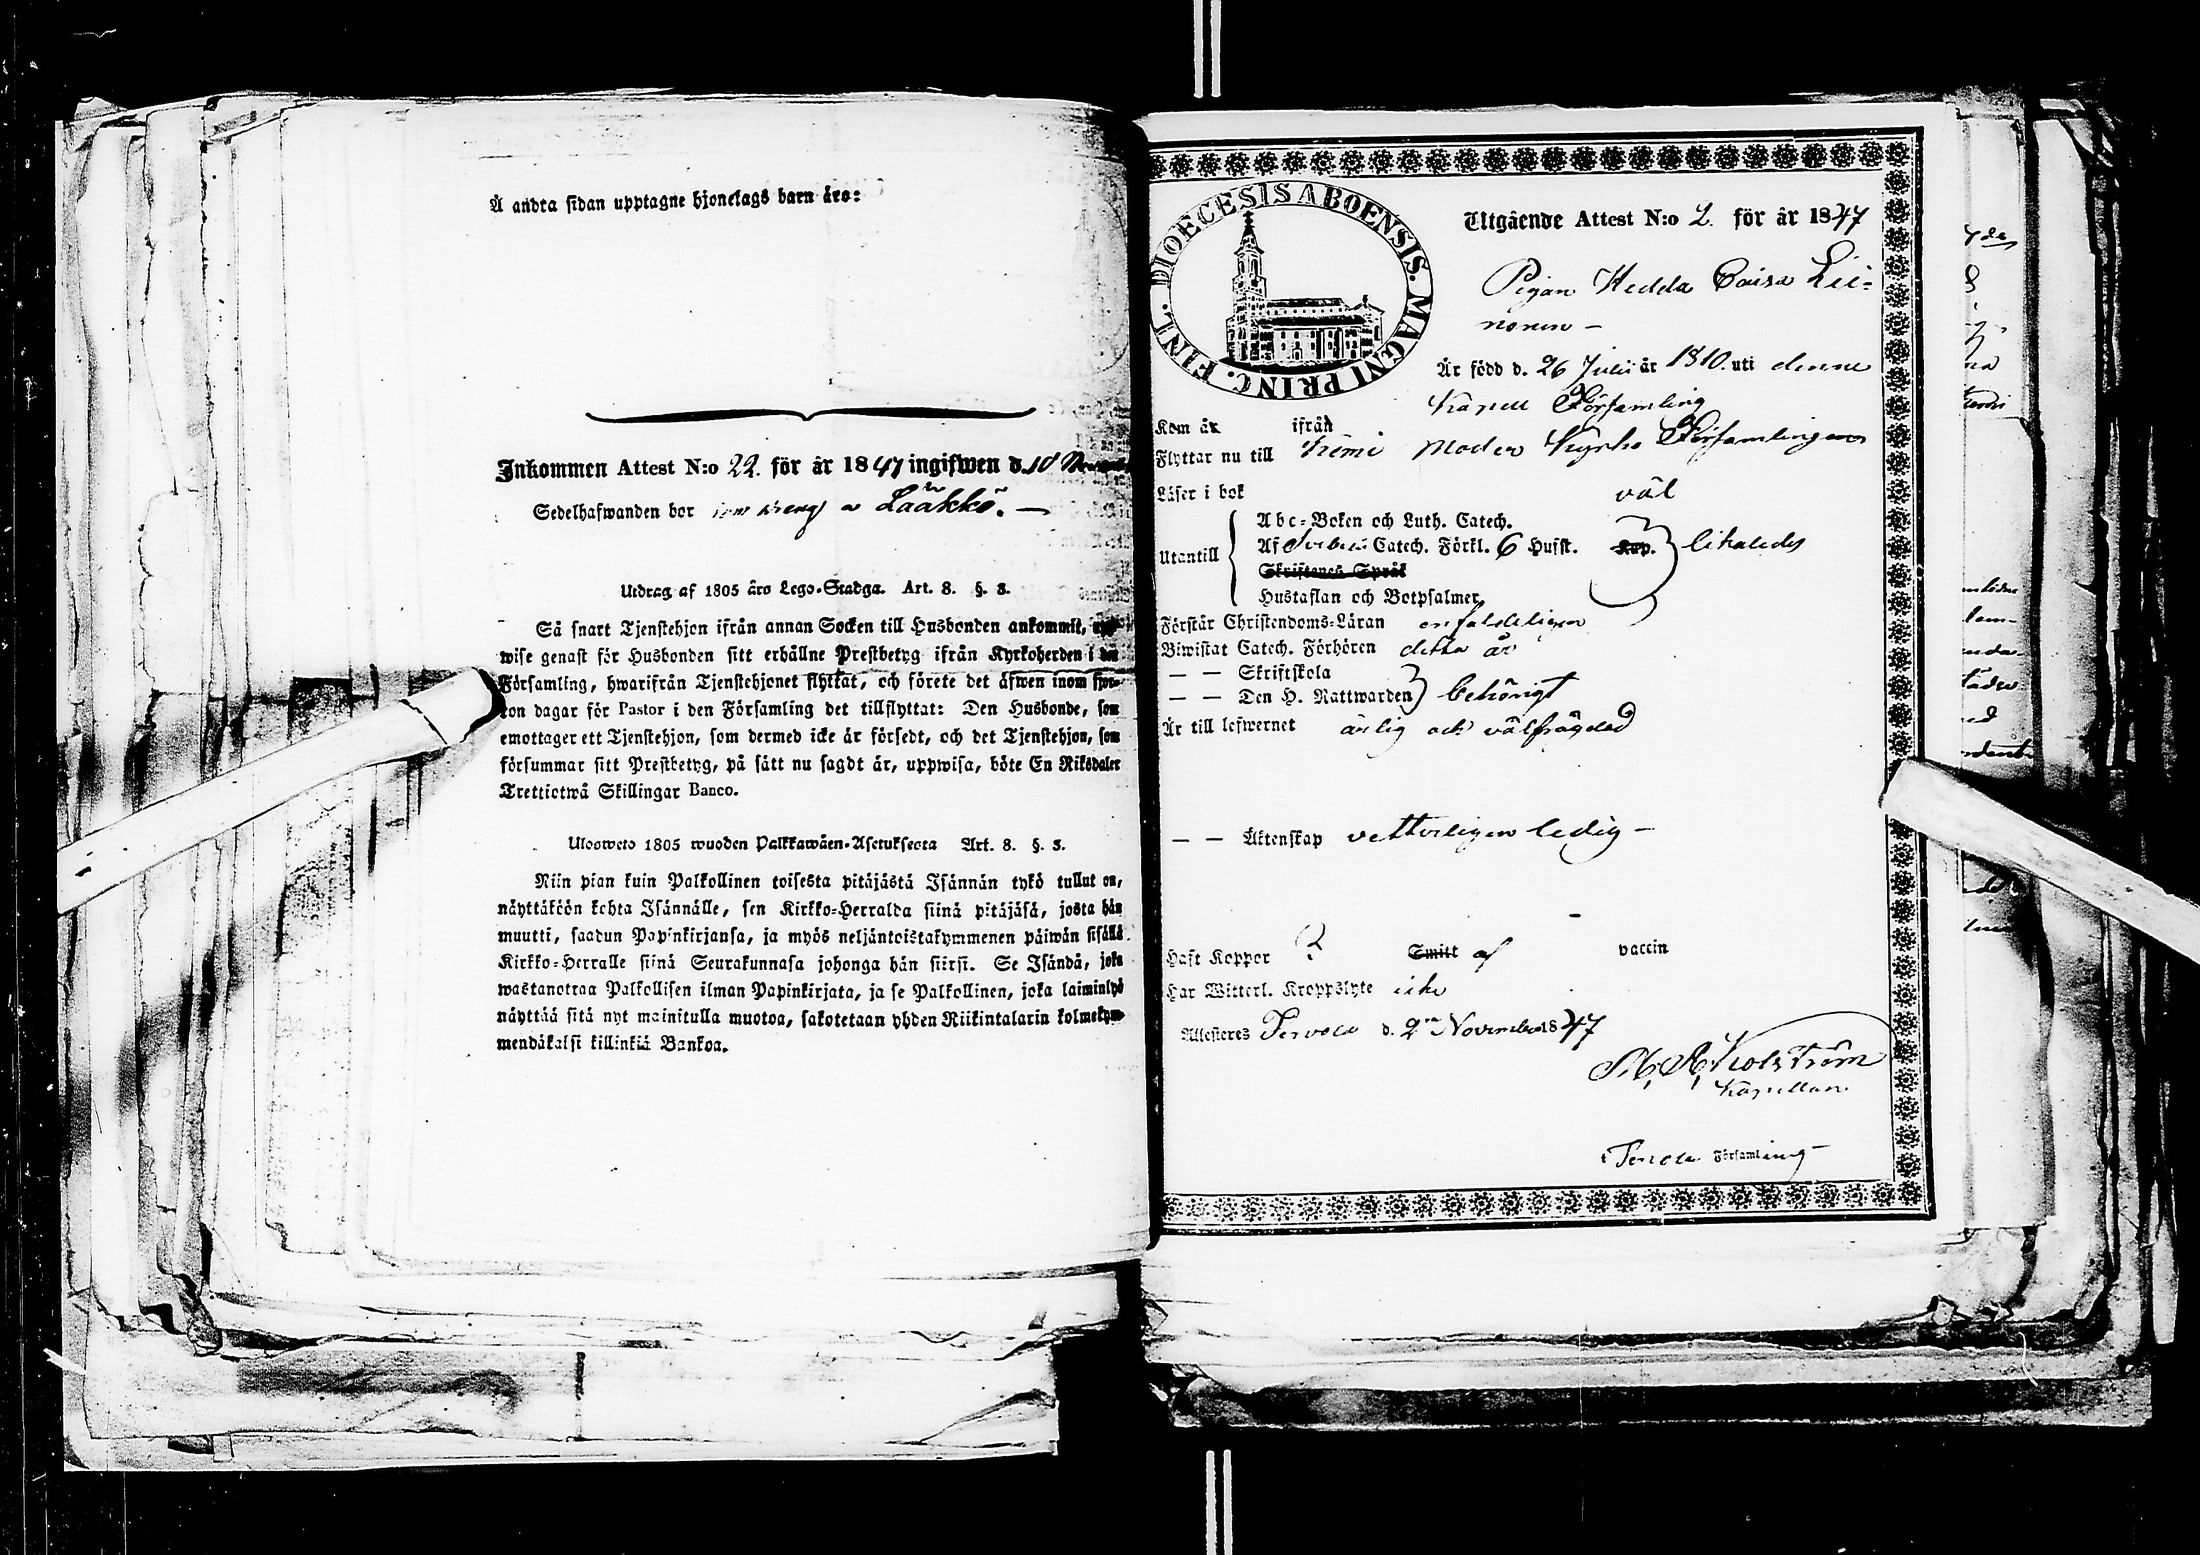 Å andra sidan upptagne hjonelags barn äro:
Inkommen Attest N:o 22. för år 1847 ingifwen d. 10
Sedelhafwanden bor som dreng å Lääkkö. —
Utdrag af 1805 års Lego-Stadga. Art. 8. §. 3.
Så snart Tjenstehjon ifrån annan Socken till Husbonden ankommit,
wise genast för Husbonden sitt erhållne Prestbetyg ifrån Kyrkoherden i den
Församling, hwarifrån Tjenstehjonet flyttat, och förete det äfwen inom fjor-
ton dagar för Pastor i den Församling det tillflyttat: Den Husbonde, som
emottager ett Tjenstehjon, som dermed icke är försedt, och det Tjenstehjon, som
försummar sitt Prestbetyg, på sätt nu sagdt är, uppwisa, böte En Riksdaler
Trettiotwå Skillingar Banco.
Ulosweto 1805 wuoden Palkkawäen-Asetuksesta Art. 8. §. 3.
Niin pian kuin Palkollinen toisesta pitäjästä Isännän tykö tullut on,
näyttäköön kohta Isännälle, sen Kirkko-Herralda siinä pitäjäsä, josta hän
muutti, saadun Papinkirjansa, ja myös neljäntoistakymmenen päiwän sisällä
Kirkko-Herralle siinä Seurakunnasa johonga hän siirsi. Se Isändä, joka
wastanotraa Palkollisen ilman Papinkirjata, ja se Palkollinen, joka laiminlyö
näyttää sitä nyt mainitulla muotoa, sakotetaan yhden Riikintalarin kolmekym-
mendäkaksi killinkiä Bankoa.
DIOECESIS ABOENSIS. MAGNI PRINC. FINL.
Utgående Attest N:o 2. för år 1847
Pigan Hedda Caisa Lii-
nonen —
Är född d. 26 Julii år 1810. uti denne
Kapell Församling
Kom år ifrån
Flyttar nu till Kemi Moder Kyrko Församlingen
Läser i bok väl
Abc-Boken och Luth. Catech.
Utantill Af Svebelii Catech. Förkl. 6 Hufst. Kap. likaledes
Skriftenes Språk
Hustaflan och Botpsalmer.
Förstår Christendoms-Läran enfaldeligen
Biwistat Catech. Förhören detta år
— — Skriftskola
— — Den H. Nattwarden behörigt
Är till lefwernet ärlig och välfrägdad
— — Äktenskap vetterligen ledig —
Haft Koppor ? Smitt af vaccin
Har Witterl. Kroppslyte icke
Attesteres Tervola d. 2 November 1847
Kapellan.
i Tervola Församling —